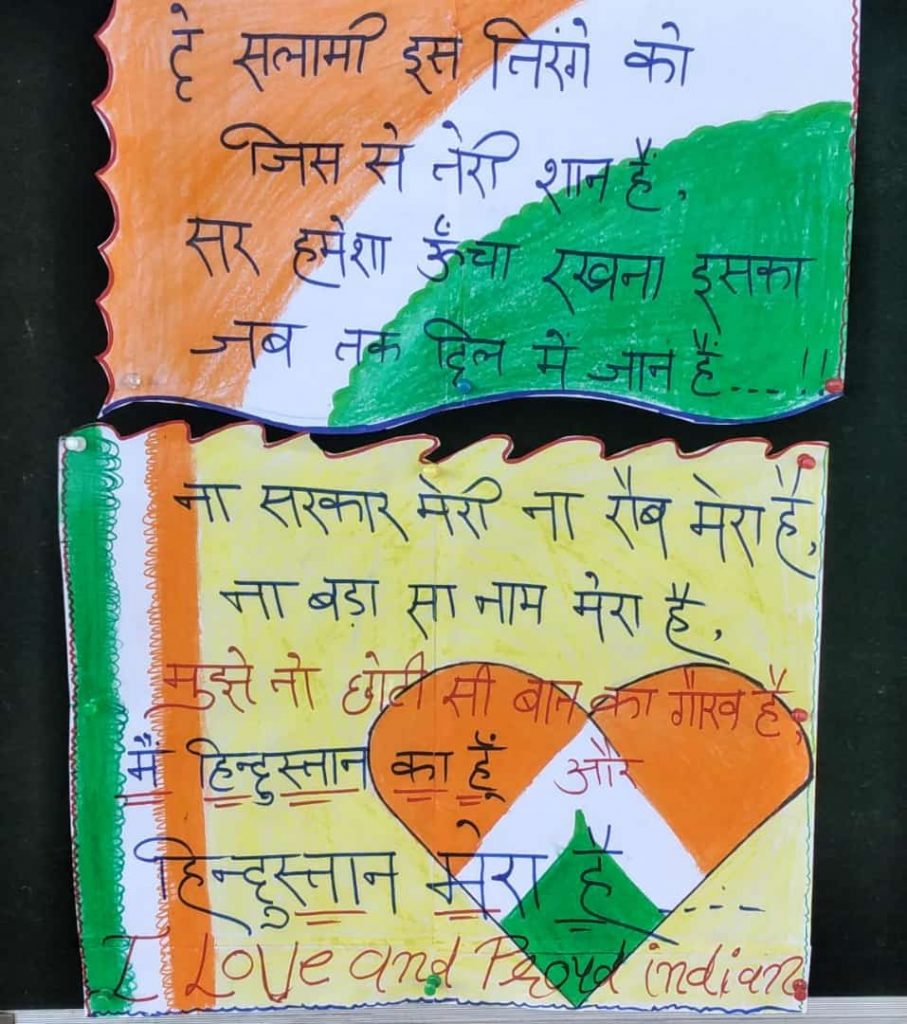 दे सलामी इस तिरंगे को
जिस से तेरी शान हैं,
सर हमेशा ऊँचा रखना इसका
जब तक दिल में जान हैं....!!
ना सरकार मेरी ना रौब मेरा है,
ना बड़ा सा नाम मेरा है,
मुझे तो छोटी सी बात का गौरव है,
मैं हिन्दुस्तान का हूँ और
हिन्दुस्तान मेरा है....
I Love and Proud indian